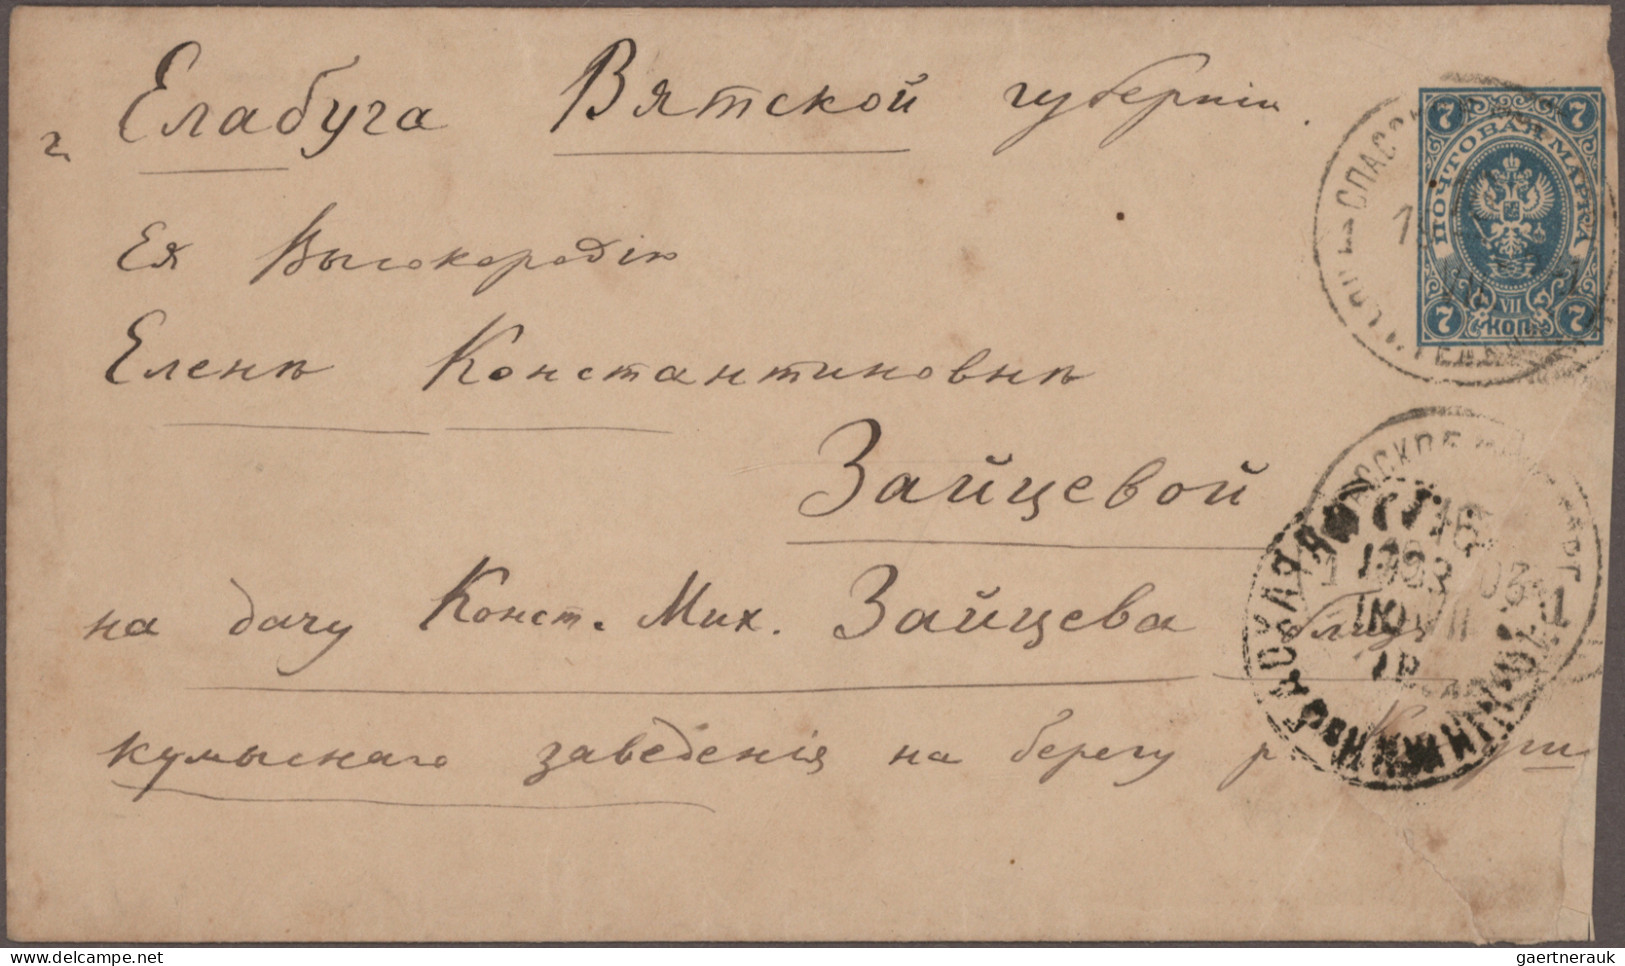 г. Елабуга Вятской губерніи.
Ея Высокородію
Еленѣ Константиновнѣ
Зайцевой
на дачу Конст. Мих. Зайцева близь
кумыснаго заведенія на берегу р.
7 7
ПОЧТОВАЯ МАРКА
VII
7 КОП. 7
gaertnerauk